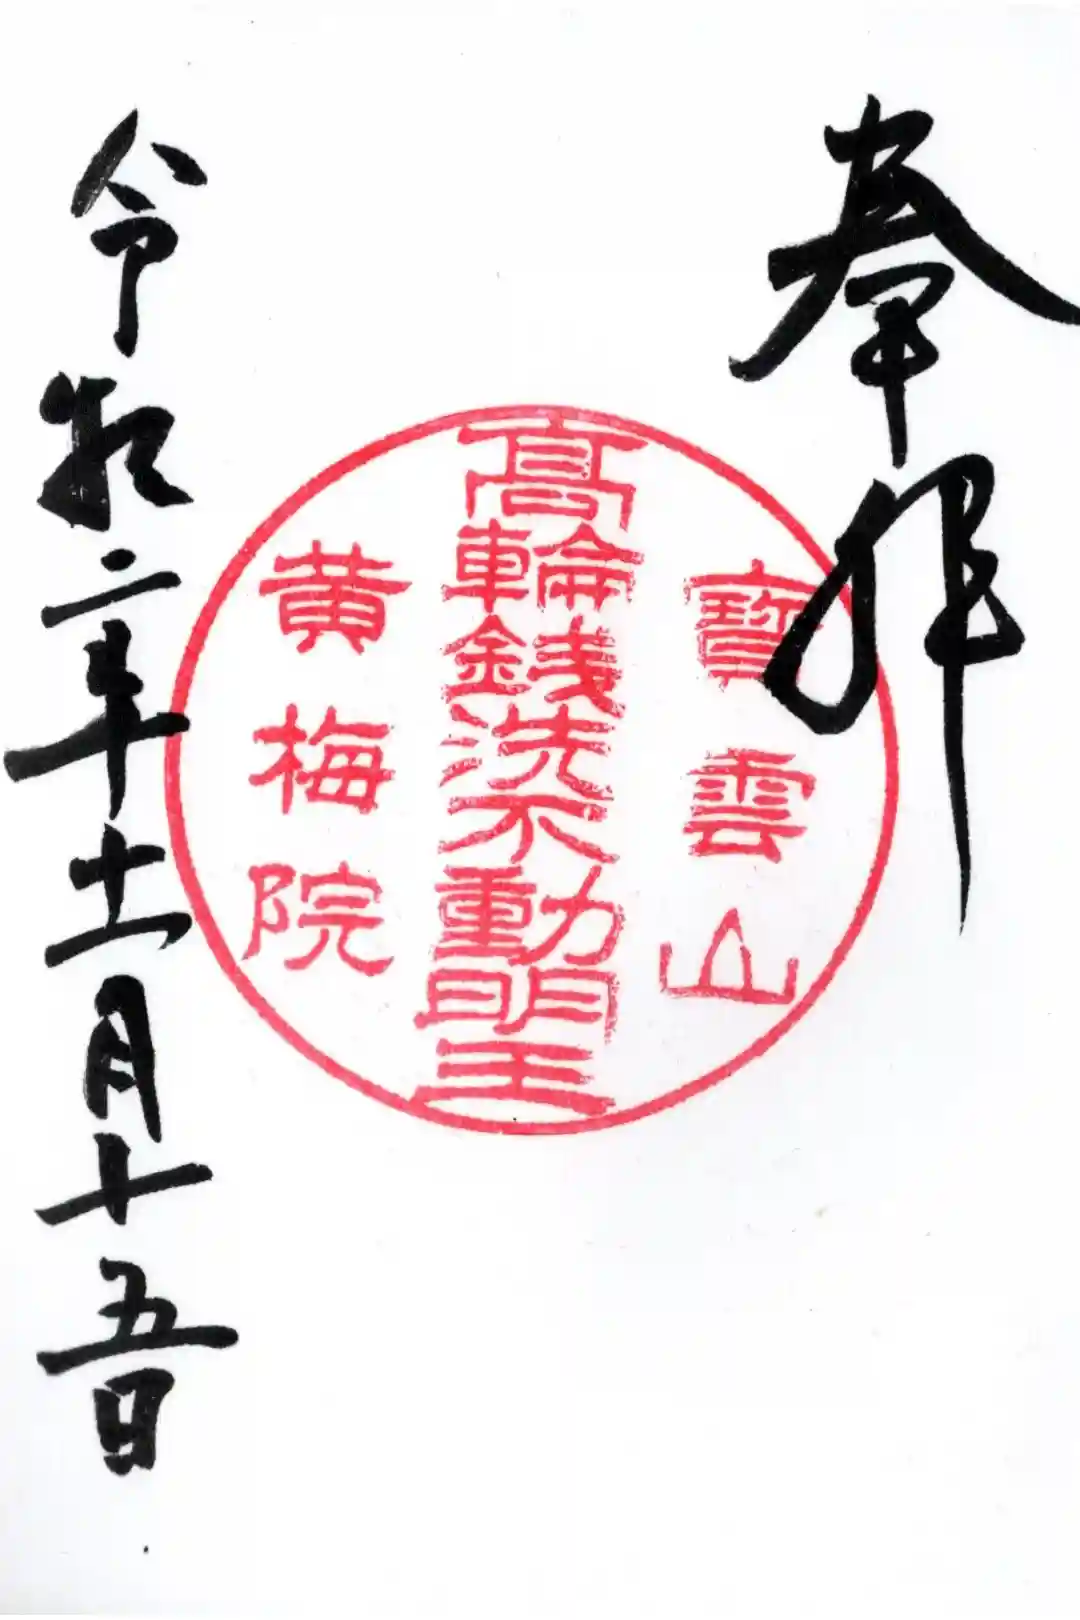 奉拝
寶雲山
高輪銭洗不動明王
黄梅院
令和二年十一月十五日